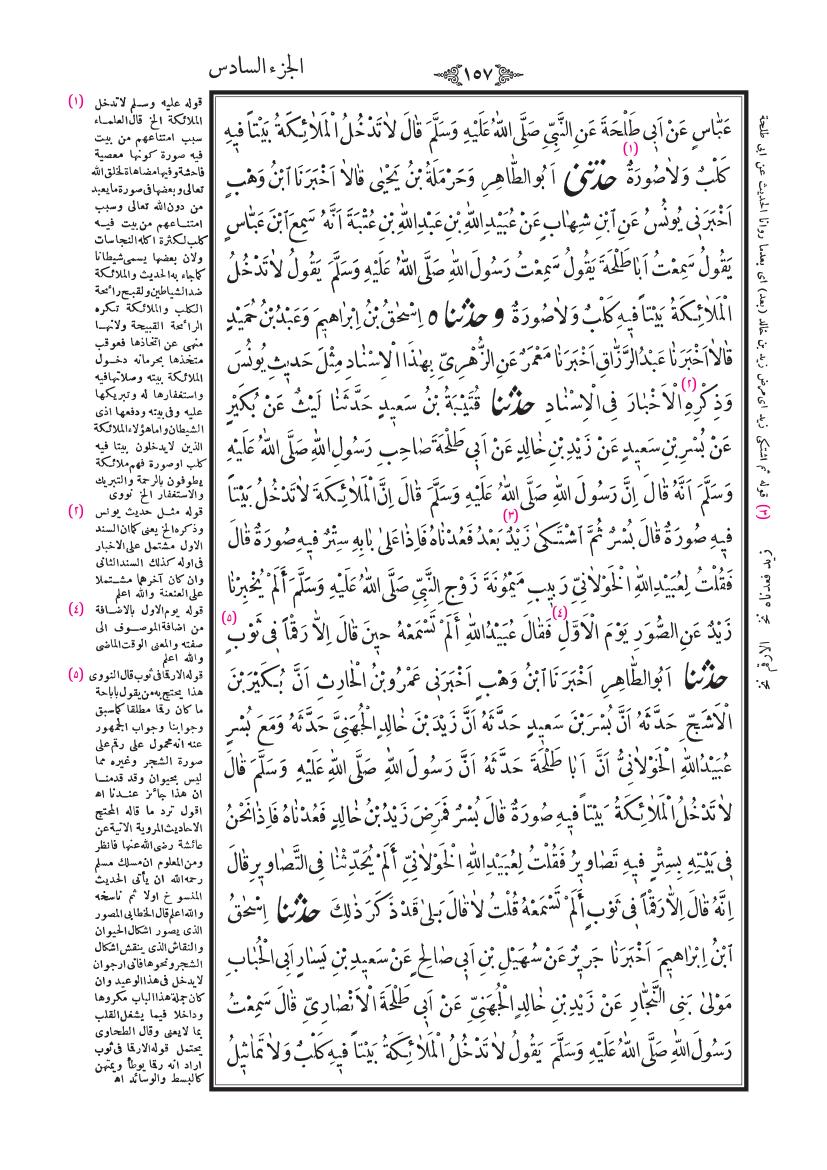 الجزء السادس
١٥٧
عَبَّاسٍ عَنْ اَبِي طَلْحَةَ عَنِ النَّبِيِّ صَلَّى اللهُ عَلَيْهِ وَسَلَّمَ قَالَ لَا تَدْخُلُ الْمَلَائِكَةُ بَيْتاً فِيهِ
كَلْبٌ وَلَا صُورَةٌ (١) حَدَّثَنِي اَبُو الطَّاهِرِ وَحَرْمَلَةُ بْنُ يَحْيٰى قَالَا اَخْبَرَنَا ابْنُ وَهْبٍ
اَخْبَرَنِي يُونُسُ عَنِ ابْنِ شِهَابٍ عَنْ عُبَيْدِ اللهِ بْنِ عَبْدِ اللهِ بْنِ عُتْبَةَ اَنَّهُ سَمِعَ ابْنَ عَبَّاسٍ
يَقُولُ سَمِعْتُ اَبَا طَلْحَةَ يَقُولُ سَمِعْتُ رَسُولَ اللهِ صَلَّى اللهُ عَلَيْهِ وَسَلَّمَ يَقُولُ لَا تَدْخُلُ
الْمَلَائِكَةُ بَيْتاً فِيهِ كَلْبٌ وَلَا صُورَةٌ وحَدَّثَنَاه اِسْحٰقُ بْنُ اِبْرَاهِيمَ وَعَبْدُ بْنُ حُمَيْدٍ
قَالَا اَخْبَرَنَا عَبْدُ الرَّزَّاقِ اَخْبَرَنَا مَعْمَرٌ عَنِ الزُّهْرِيِّ بِهٰذَا الْاِسْنَادِ مِثْلَ حَدِيثِ يُونُسَ
وَذِكْرِهِ الْاَخْبَارَ (٢) فِي الْاِسْنَادِ حَدَّثَنَا قُتَيْبَةُ بْنُ سَعِيدٍ حَدَّثَنَا لَيْثٌ عَنْ بُكَيْرٍ
عَنْ بُسْرِ بْنِ سَعِيدٍ عَنْ زَيْدِ بْنِ خَالِدٍ عَنْ اَبِي طَلْحَةَ صَاحِبِ رَسُولِ اللهِ صَلَّى اللهُ عَلَيْهِ
وَسَلَّمَ اَنَّهُ قَالَ اِنَّ رَسُولَ اللهِ صَلَّى اللهُ عَلَيْهِ وَسَلَّمَ قَالَ اِنَّ الْمَلَائِكَةَ لَا تَدْخُلُ بَيْتاً
فِيهِ صُورَةٌ قَالَ بُسْرٌ ثُمَّ اشْتَكٰى زَيْدٌ بَعْدُ (٣) فَعُدْنَاهُ فَاِذَا عَلٰى بَابِهِ سِتْرٌ فِيهِ صُورَةٌ قَالَ
فَقُلْتُ لِعُبَيْدِ اللهِ الْخَوْلَانِيِّ رَبِيبِ مَيْمُونَةَ زَوْجِ النَّبِيِّ صَلَّى اللهُ عَلَيْهِ وَسَلَّمَ أَلَمْ يُخْبِرْنَا
زَيْدٌ عَنِ الصُّوَرِ يَوْمَ الْاَوَّلِ (٤) فَقَالَ عُبَيْدُ اللهِ أَلَمْ تَسْمَعْهُ حِينَ قَالَ اِلَّا رَقْماً فِي ثَوْبٍ (٥)
حَدَّثَنَا اَبُو الطَّاهِرِ اَخْبَرَنَا ابْنُ وَهْبٍ اَخْبَرَنِي عَمْرُو بْنُ الْحَارِثِ اَنَّ بُكَيْرَ بْنَ
الْاَشَجِّ حَدَّثَهُ اَنَّ بُسْرَ بْنَ سَعِيدٍ حَدَّثَهُ اَنَّ زَيْدَ بْنَ خَالِدٍ الْجُهَنِيَّ حَدَّثَهُ وَمَعَ بُسْرٍ
عُبَيْدُ اللهِ الْخَوْلَانِيُّ اَنَّ اَبَا طَلْحَةَ حَدَّثَهُ اَنَّ رَسُولَ اللهِ صَلَّى اللهُ عَلَيْهِ وَسَلَّمَ قَالَ
لَا تَدْخُلُ الْمَلَائِكَةُ بَيْتاً فِيهِ صُورَةٌ قَالَ بُسْرٌ فَمَرِضَ زَيْدُ بْنُ خَالِدٍ فَعُدْنَاهُ فَاِذَا نَحْنُ
فِي بَيْتِهِ بِسِتْرٍ فِيهِ تَصَاوِيرُ فَقُلْتُ لِعُبَيْدِ اللهِ الْخَوْلَانِيِّ أَلَمْ يُحَدِّثْنَا فِي التَّصَاوِيرِ قَالَ
اِنَّهُ قَالَ اِلَّا رَقْماً فِي ثَوْبٍ أَلَمْ تَسْمَعْهُ قُلْتُ لَا قَالَ بَلٰى قَدْ ذَكَرَ ذٰلِكَ حَدَّثَنَا اِسْحٰقُ
ابْنُ اِبْرَاهِيمَ اَخْبَرَنَا جَرِيرٌ عَنْ سُهَيْلِ بْنِ اَبِي صَالِحٍ عَنْ سَعِيدِ بْنِ يَسَارٍ اَبِي الْحُبَابِ
مَوْلٰى بَنِي النَّجَّارِ عَنْ زَيْدِ بْنِ خَالِدٍ الْجُهَنِيِّ عَنْ اَبِي طَلْحَةَ الْاَنْصَارِيِّ قَالَ سَمِعْتُ
رَسُولَ اللهِ صَلَّى اللهُ عَلَيْهِ وَسَلَّمَ يَقُولُ لَا تَدْخُلُ الْمَلَائِكَةُ بَيْتاً فِيهِ كَلْبٌ وَلَا تَمَاثِيلُ
(١) قوله عليه وسلم لا تدخل
الملائكة الخ قال العلماء
سبب امتناعهم من بيت
فيه صورة كونها معصية
فاحشة وفيها مضاهاة لخلق الله
تعالى وبعضها في صورة ما يعبد
من دون الله تعالى وسبب
امتناعهم من بيت فيه
كلب لكثرة اكله النجاسات
ولان بعضها يسمى شيطانا
كما جاء به الحديث والملائكة
ضد الشياطين ولقبح رائحة
الكلب والملائكة تكره
الرائحة القبيحة ولانها
منهى عن اتخاذها فعوقب
متخذها بحرمانه دخول
الملائكة بيته وصلاتها فيه
واستغفارها له وتبريكها
عليه وفى بيته ودفعها اذى
الشيطان واما هؤلاء الملائكة
الذين لا يدخلون بيتا فيه
كلب او صورة فهم ملائكة
يطوفون بالرحمة والتبريك
والاستغفار الخ نووى
(٢) قوله مثل حديث يونس
وذكره الخ يعنى كما ان السند
الاول مشتمل على الاخبار
فى اوله كذلك السند الثانى
وان كان آخرها مشتملا
على العنعنة والله اعلم
(٤) قوله يوم الاول بالاضافة
من اضافة الموصوف الى
صفته والمعنى الوقت الماضى
والله اعلم
(٥) قوله الا رقما فى ثوب قال النووى
هذا يحتج به من يقول باباحة
ما كان رقما مطلقا كما سبق
وجوابنا وجواب الجمهور
عنه انه محمول على رقم على
صورة الشجر وغيره مما
ليس بحيوان وقد قدمنا
ان هذا جائز عندنا اه
اقول ترد ما قاله المحتج
الاحاديث المروية الآتية عن
عائشة رضى الله عنها فانظر
ومن المعلوم ان مسلك مسلم
رحمه الله ان يأتى الحديث
المنسوخ اولا ثم ناسخه
والله اعلم قال الخطابى المصور
الذى يصور اشكال الحيوان
والنقاش الذى ينقش اشكال
الشجر ونحوها فانى ارجو ان
لا يدخل فى هذا الوعيد وان
كان جملة هذا الباب مكروها
وداخلا فيما يشغل القلب
بما لا يعنى وقال الطحاوى
يحتمل قوله الا رقما فى ثوب
اراد انه رقما يوطأ ويمتهن
كالبسط والوسائد اه
(٣) قوله ثم اشتكى زيد اى مرض زيد بن خالد (بعد) اى بعدما روانا الحديث عن ابى طلحة
زيد فعدناه نخ
الارقم نخ